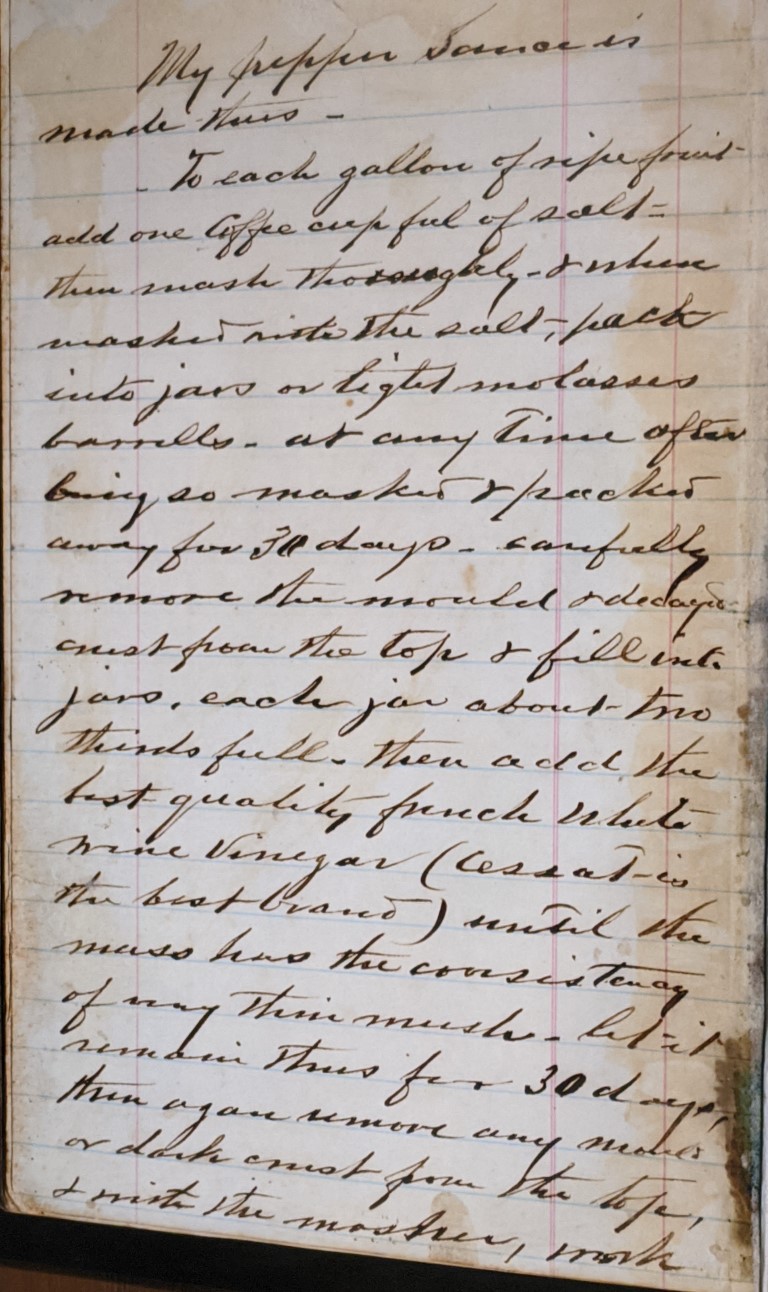 My pepper sauce is
made thus -
- To each gallon of ripe fruit
add one Coffee cup ful of salt-
then mash thoroughly - & when
mashed with the salt, pack
into jars or tight molasses
barrells - at any time after
being so mashed & packed
away for 30 days - carefully
remove the mould & decayed
crust from the top & fill into
jars, each jar about two
thirds full - then add the
best quality french white
wine vinegar (Cessat is
the best brand) until the
mass has the consistency
of very thin mush - let it
remain thus for 30 days,
then again remove any mould
or dark crust from the top,
& with the masher, work